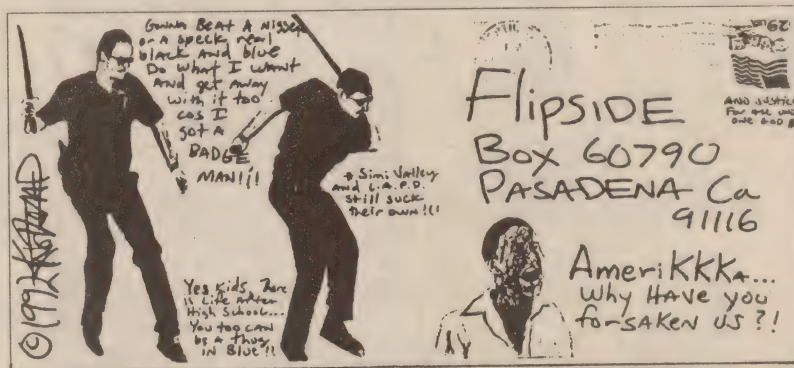 Gonna Beat A Nigger
or a speck real
black And blue
Do what I want
And get Away
with it too
cos I
got A
BADGE
MAN!!!
+ Simi Valley
And L.A.P.D.
still suck
their own!!!
Yes Kids, There
is Life After
High School...
You too CAN
be a thug
IN Blue!!
©1992
FlipSIDE
Box 60790
PASADENA Ca
91116
AND JUSTICE
FOR ALL
ONE GOD
AmeriKKKA...
Why HAVE you
for-SAKEN US?!